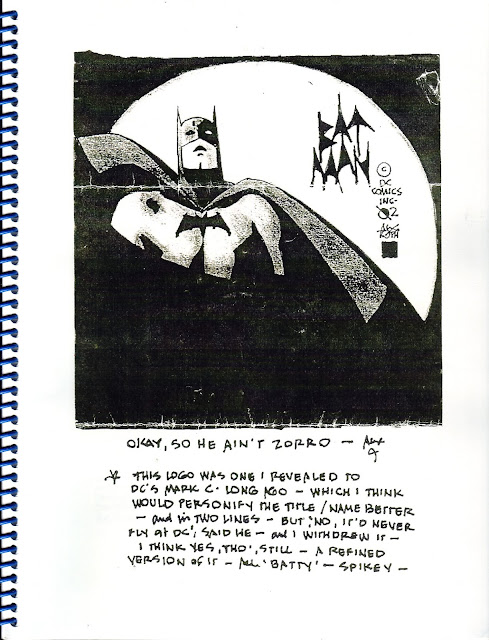 BAT
MAN
©
DC
COMICS
INC.
02
ALEX
TOTH
OKAY, SO HE AIN'T ZORRO — Alex
* THIS LOGO WAS ONE I REVEALED TO
DC'S MARK C. LONG AGO — WHICH I THINK
WOULD PERSONIFY THE TITLE/NAME BETTER
— and in TWO LINES — BUT, 'NO, IT'D NEVER
FLY at DC', SAID HE — and I WITHDREW IT —
I THINK YES, THO', STILL — A REFINED
VERSION OF IT — ALL 'BATTY' — SPIKEY —